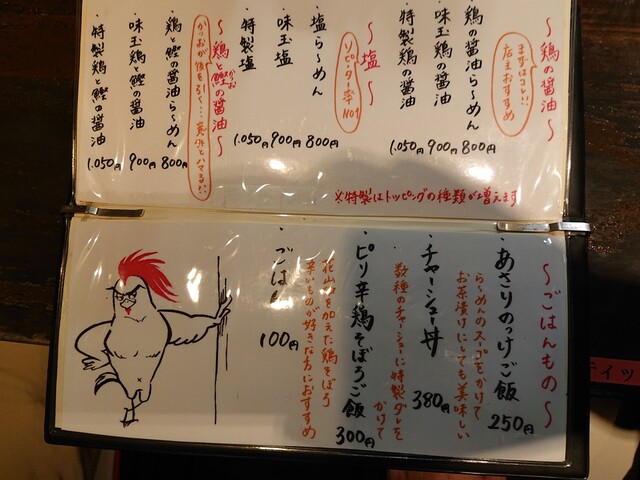 〜鶏の醤油〜
まずはコレ!!
店主おすすめ
・鶏の醤油らーめん 800円
・味玉鶏の醤油 900円
・特製鶏の醤油 1.050円
〜塩〜
リピーター率No1
・塩らーめん 800円
・味玉塩 900円
・特製塩 1.050円
〜鶏と鰹の醤油〜
かつお
かつおが後を引く…意外とハマる!!
・鶏と鰹の醤油らーめん 800円
・味玉鶏と鰹の醤油 900円
・特製鶏と鰹の醤油 1.050円
※特製はトッピングの種類が増えます
〜ごはんもの〜
・あさりのっけご飯 250円
らーめんのスープをかけて
お茶漬けにしても美味しい
・チャーシュー丼 380円
数種のチャーシューに特製ダレを
かけて
・ピリ辛鶏そぼろご飯 300円
花山椒を加えた鶏そぼろ
辛いものが好きな方におすすめ
・ごはん 100円
ティッ